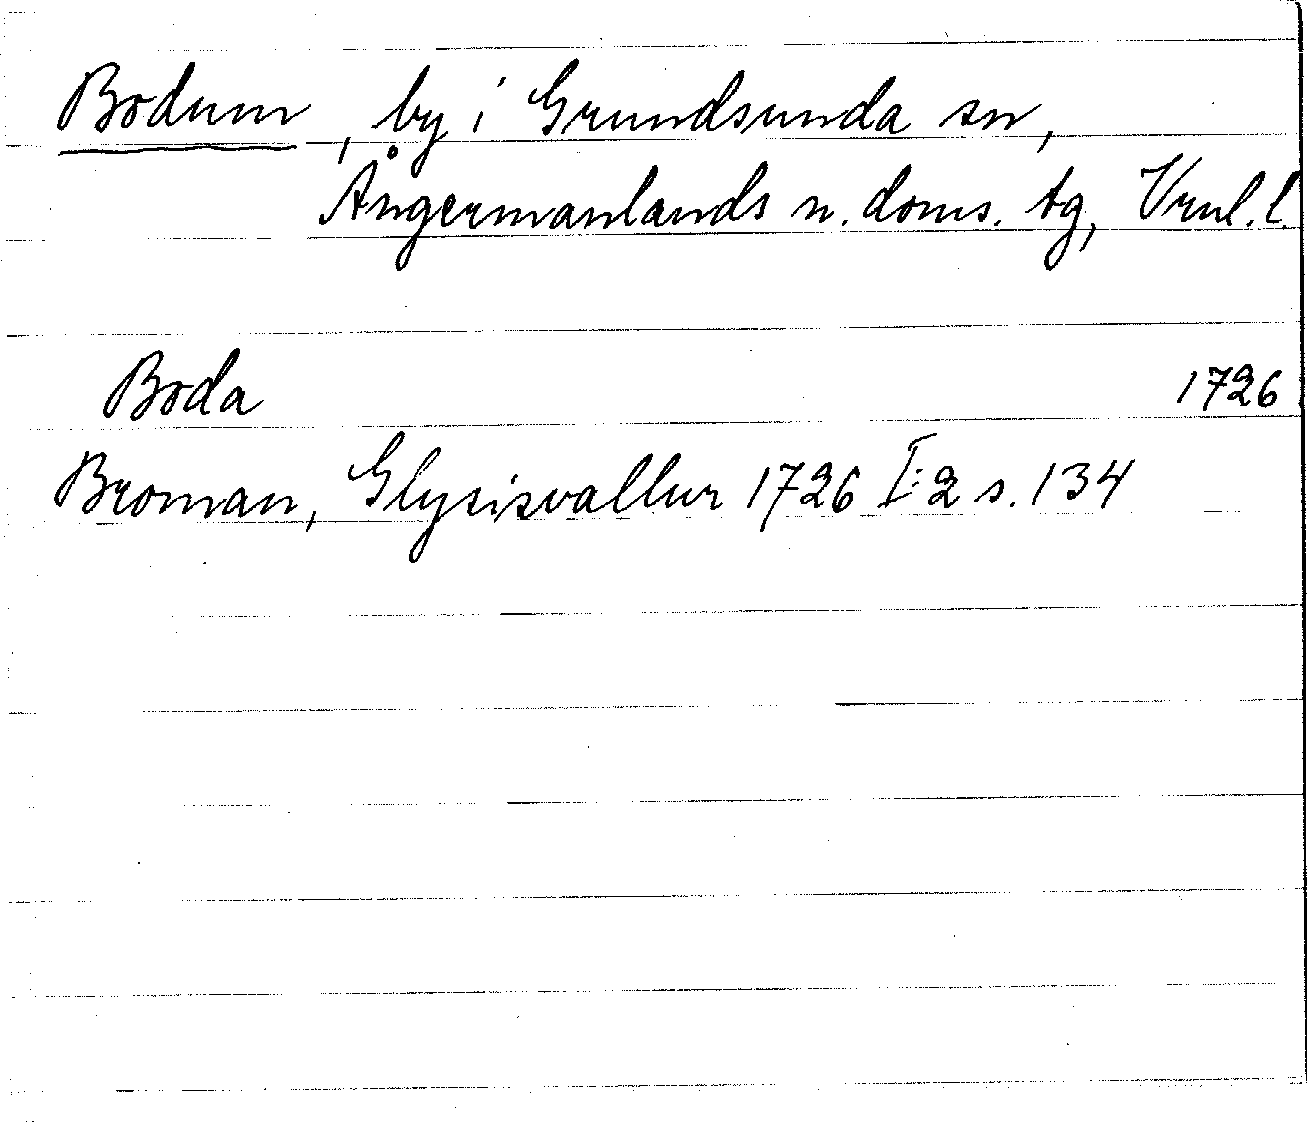 Bodum, by i Grundsunda sn,
Ångermanlands n. doms. tg, Vrnl. l.
Boda 1726
Broman, Glysisvallur 1726 I:2 s. 134